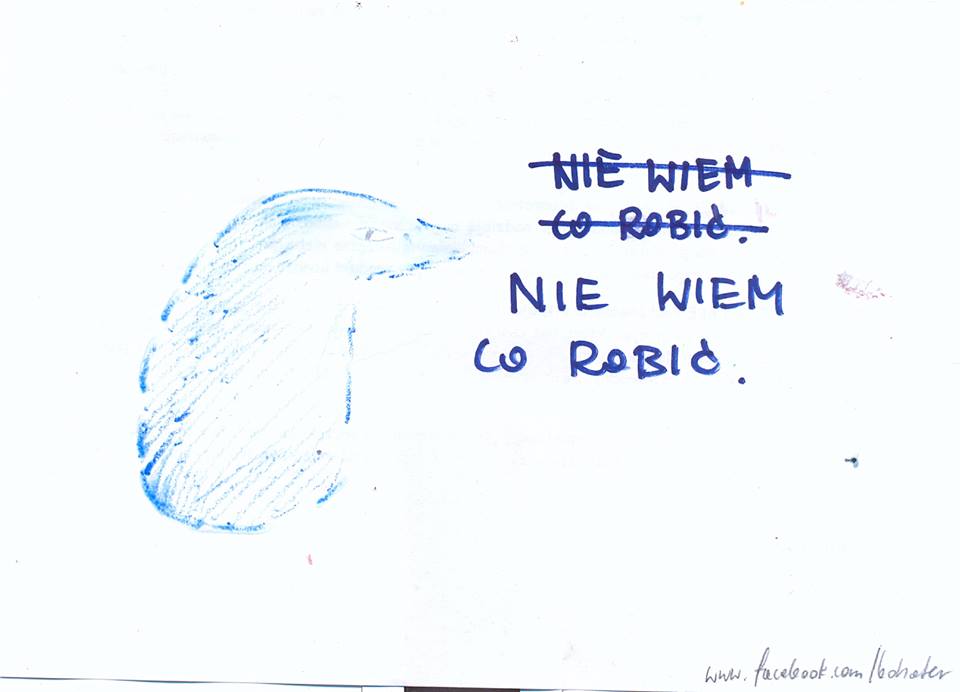 NIE WIEM
CO ROBIĆ.
NIE WIEM
CO ROBIĆ.
www.facebook.com/bohater